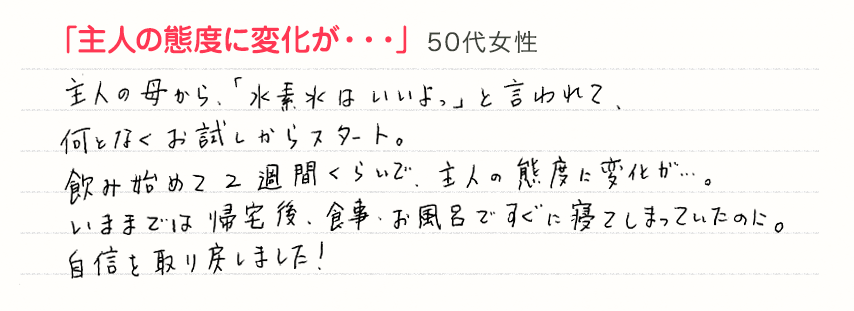 「主人の態度に変化が・・・」 50代女性
主人の母から、「水素水はいいよっ」と言われて、
何となくお試しからスタート。
飲み始めて2週間くらいで、主人の態度に変化が…。
いままでは帰宅後、食事、お風呂ですぐに寝てしまっていたのに。
自信を取り戻しました!